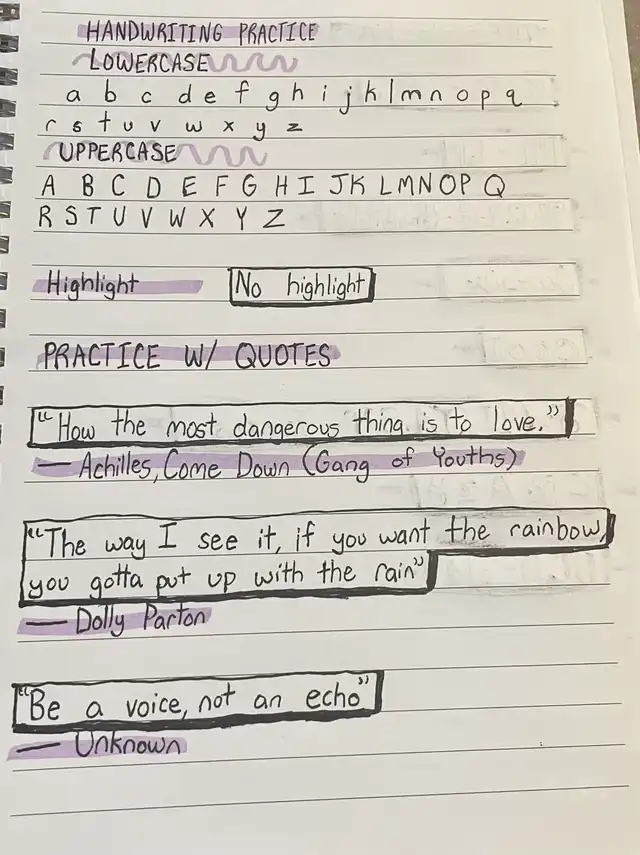 HANDWRITING PRACTICE
LOWERCASE
a b c d e f g h i j k l m n o p q
r s t u v w x y z
UPPERCASE
A B C D E F G H I J K L M N O P Q
R S T U V W X Y Z
Highlight No highlight
PRACTICE W/ QUOTES
“How the most dangerous thing is to love.”
— Achilles, Come Down (Gang of Youths)
“The way I see it, if you want the rainbow,
you gotta put up with the rain”
— Dolly Parton
“Be a voice, not an echo”
— Unknown